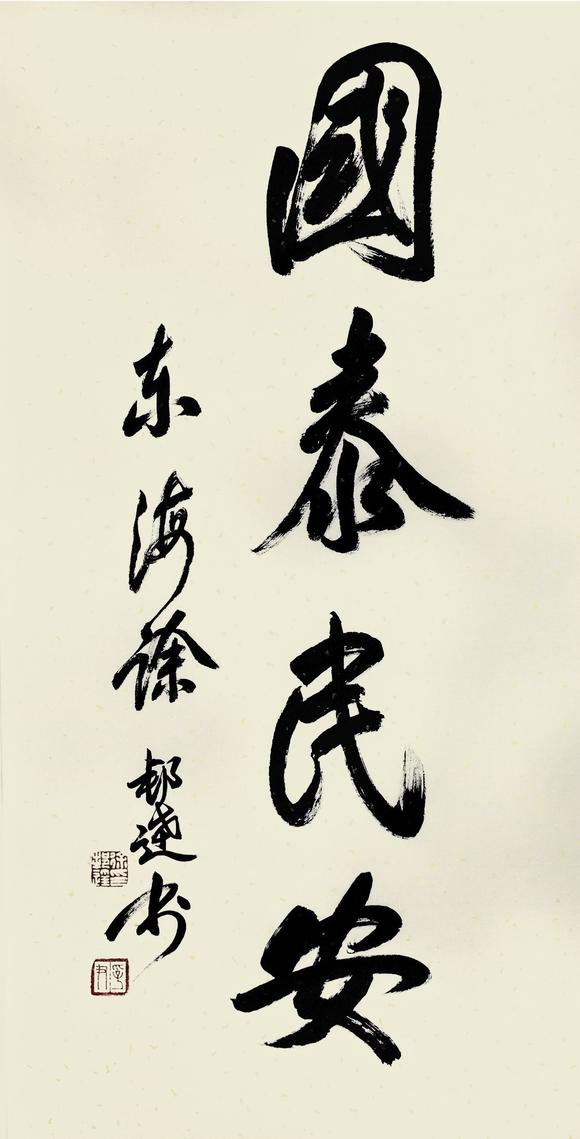 國泰民安
东海徐邨達书